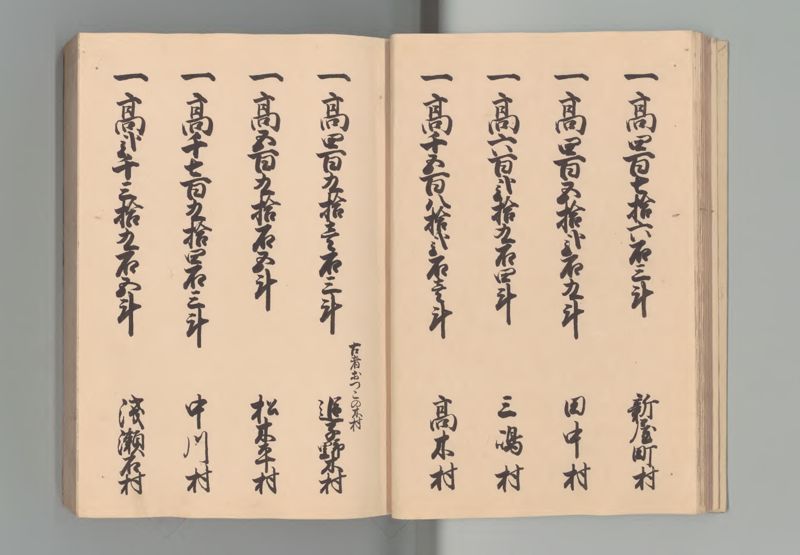 一高四百七拾六石三斗 新屋町村
一高四百五拾弐石九斗 田中村
一高六百弐拾九石四斗 三嶋村
一高千五百八拾弐石壱斗 高木村
古者おつこの木村
一高四百九拾壱石三斗 追子野木村
一高五百九拾石五斗 松木平村
一高千七百九拾四石三斗 中川村
一高弐千三拾九石五斗 浅瀬石村